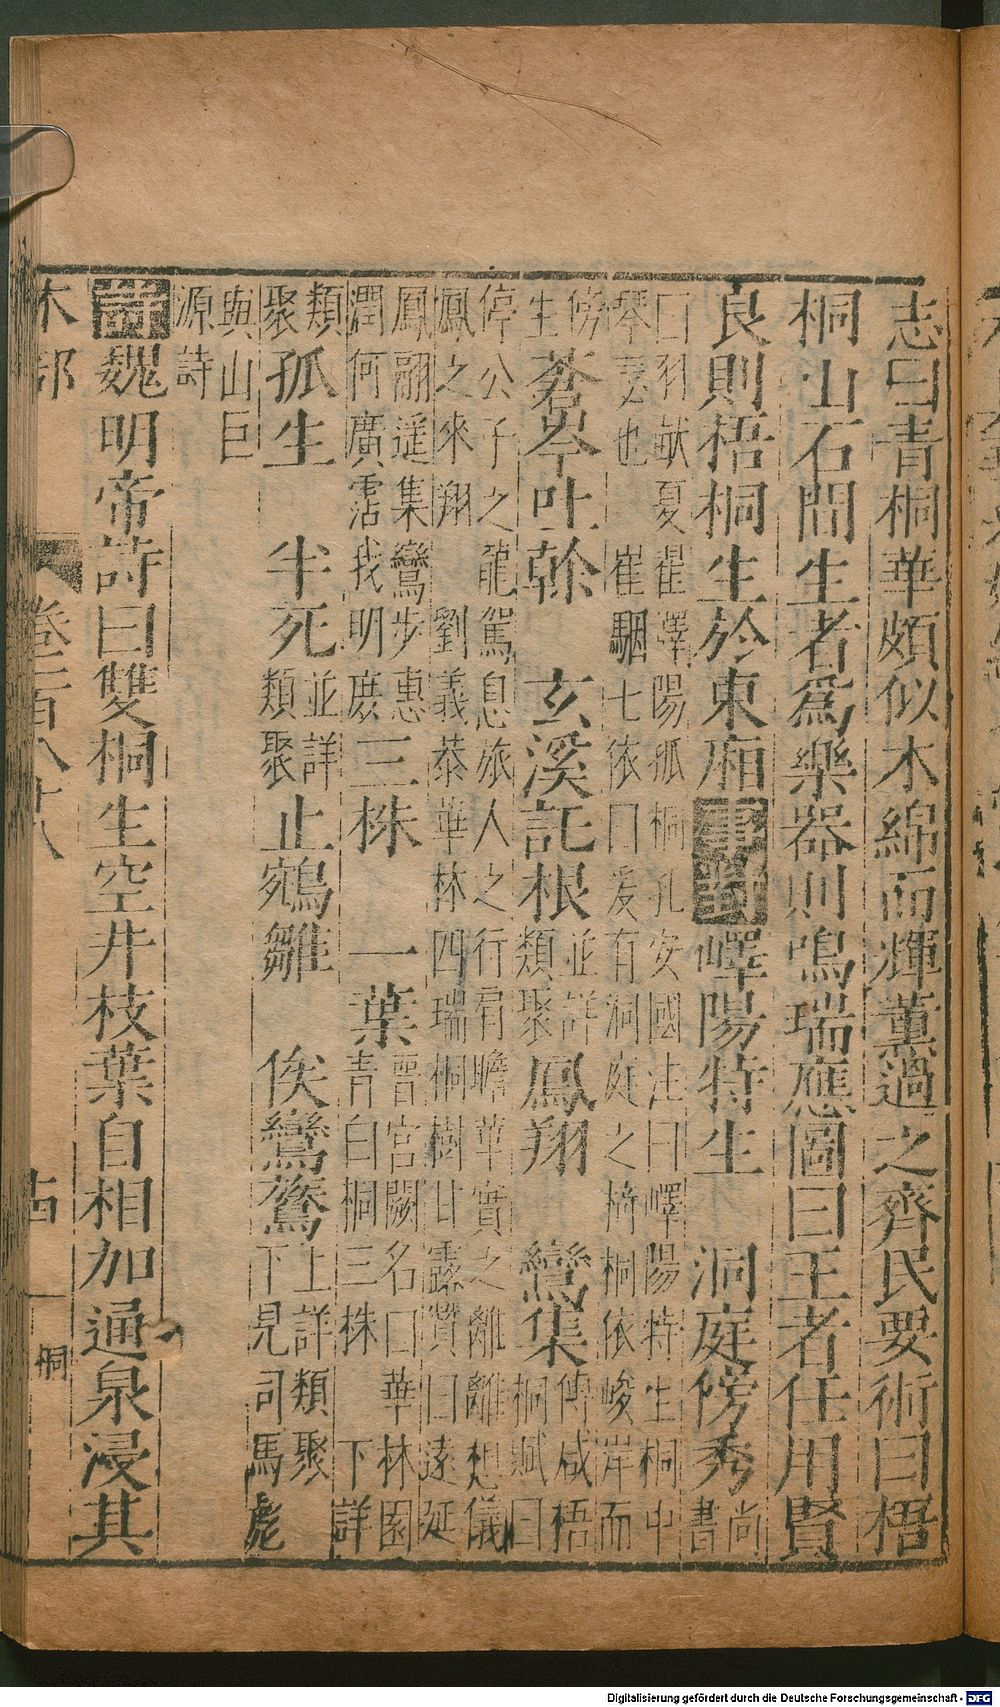 志曰青桐華頗似木綿而輝薰過之齊民要術曰梧
桐山石間生者爲樂器則鳴瑞應圖曰王者任用賢
良則梧桐生於東廂事對嶧陽特生 洞庭傍秀尚書
曰羽畎夏翟嶧陽孤桐孔安國注曰嶧陽特生桐中
琴瑟也 崔駰七依曰爰有洞庭之椅桐依峻岸而
傍生蒼岑吐幹 玄溪託根並詳類聚鳳翔 鸞集傅咸梧桐賦曰
停公子之龍駕息旅人之行肩瞻華實之離離想儀
鳳之來翔 劉義恭華林四瑞桐樹甘露贊曰遠延
鳳翮遥集鸞步惠潤何廣霑我明庶三株 一葉晉宮闕名曰華林園青白桐三株 下詳
類聚孤生 半死並詳類聚止鵷雛 俟鸞鷟上詳類聚下見司馬彪
與山巨源詩
詩魏明帝詩曰雙桐生空井枝葉自相加通泉浸其
木部 卷二百八十八 桐
Digitalisierung gefördert durch die Deutsche Forschungsgemeinschaft - DFG